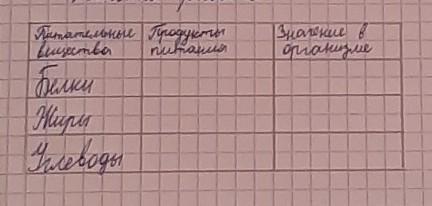 Питательные вещества
Продукты питания
Значение в организме
Белки
Жиры
Углеводы